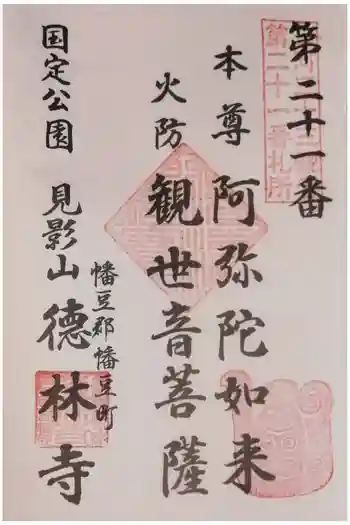 第二十一番
本尊 阿弥陀如来
火防 観世音菩薩
幡豆郡幡豆町
国定公園 見影山 徳林寺
第二十一番札所